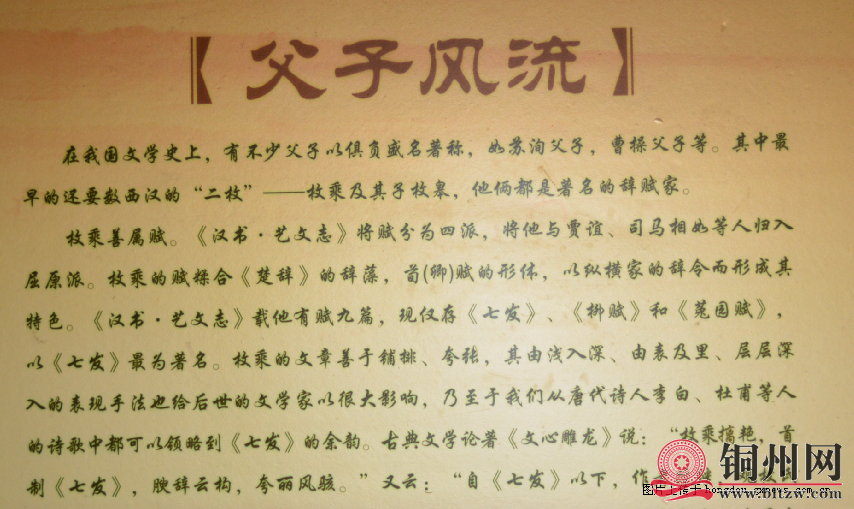 【父子风流】
在我国文学史上，有不少父子以俱负盛名著称，如苏洵父子，曹操父子等。其中最
早的还要数西汉的“二枚”——枚乘及其子枚皋，他俩都是著名的辞赋家。
枚乘善属赋。《汉书·艺文志》将赋分为四派，将他与贾谊、司马相如等人归入
屈原派。枚乘的赋糅合《楚辞》的辞藻，荀(卿)赋的形体，以纵横家的辞令而形成其
特色。《汉书·艺文志》载他有赋九篇，现仅存《七发》、《柳赋》和《菟园赋》，
以《七发》最为著名。枚乘的文章善于铺排、夸张，其由浅入深、由表及里、层层深
入的表现手法也给后世的文学家以很大影响，乃至于我们从唐代诗人李白、杜甫等人
的诗歌中都可以领略到《七发》的余韵。古典文学论著《文心雕龙》说：“枚乘摛艳，首
制《七发》，腴辞云构，夸丽风骇。”又云：“自《七发》以下，作
铜州网
www.bltzw.com
图片上传于